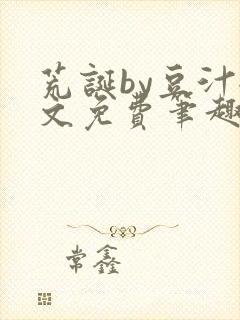 荒誕by豆汁
文免費筆趣
常鑫